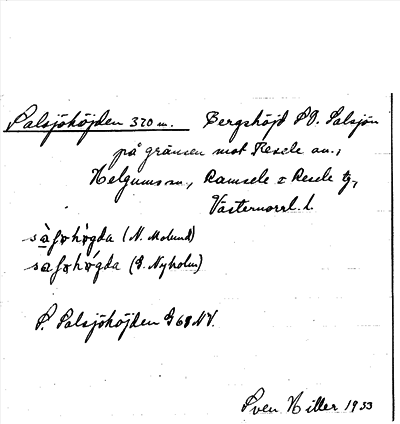 Salsjöhöjden 370 m. Bergshöjd SO. Salsjön
på gränsen mot Resele sn.,
Helgums sn, Ramsele o Resele tg,
Västernorrl. l.
(N. Molund)
(E. Nyholm)
S. Salsjöhöjden G 68 NV.
Sven Hiller 1933